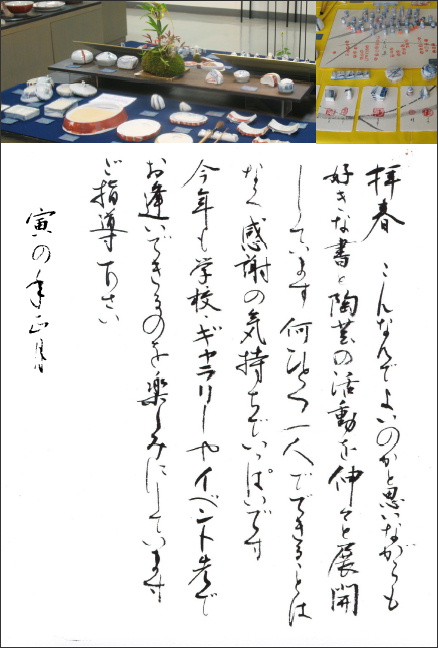 拝春 こんなんでよいのかと思いながらも
好きな書と陶芸の活動を伸々と展開
しています 何ひとつ一人でできることは
なく感謝の気持ちでいっぱいです
今年も学校・ギャラリーやイベント考で
お逢いできるのを楽しみにしています
ご指導下さい
寅の年正月